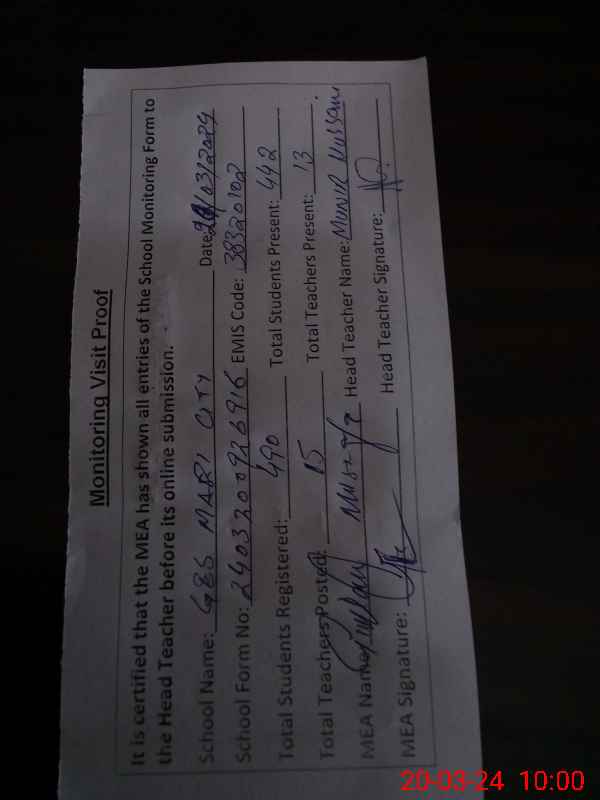 Monitoring Visit Proof
It is certified that the MEA has shown all entries of the School Monitoring Form to
the Head Teacher before its online submission.
School Name: GES MARI CITY Date: 20/03/2024
School Form No: 2403200926916 EMIS Code: 38320102
Total Students Registered: 490 Total Students Present: 442
Total Teachers Posted: 15 Total Teachers Present: 13
MEA Name: Head Teacher Name: Hussain
MEA Signature: Head Teacher Signature:
20-03-24 10:00